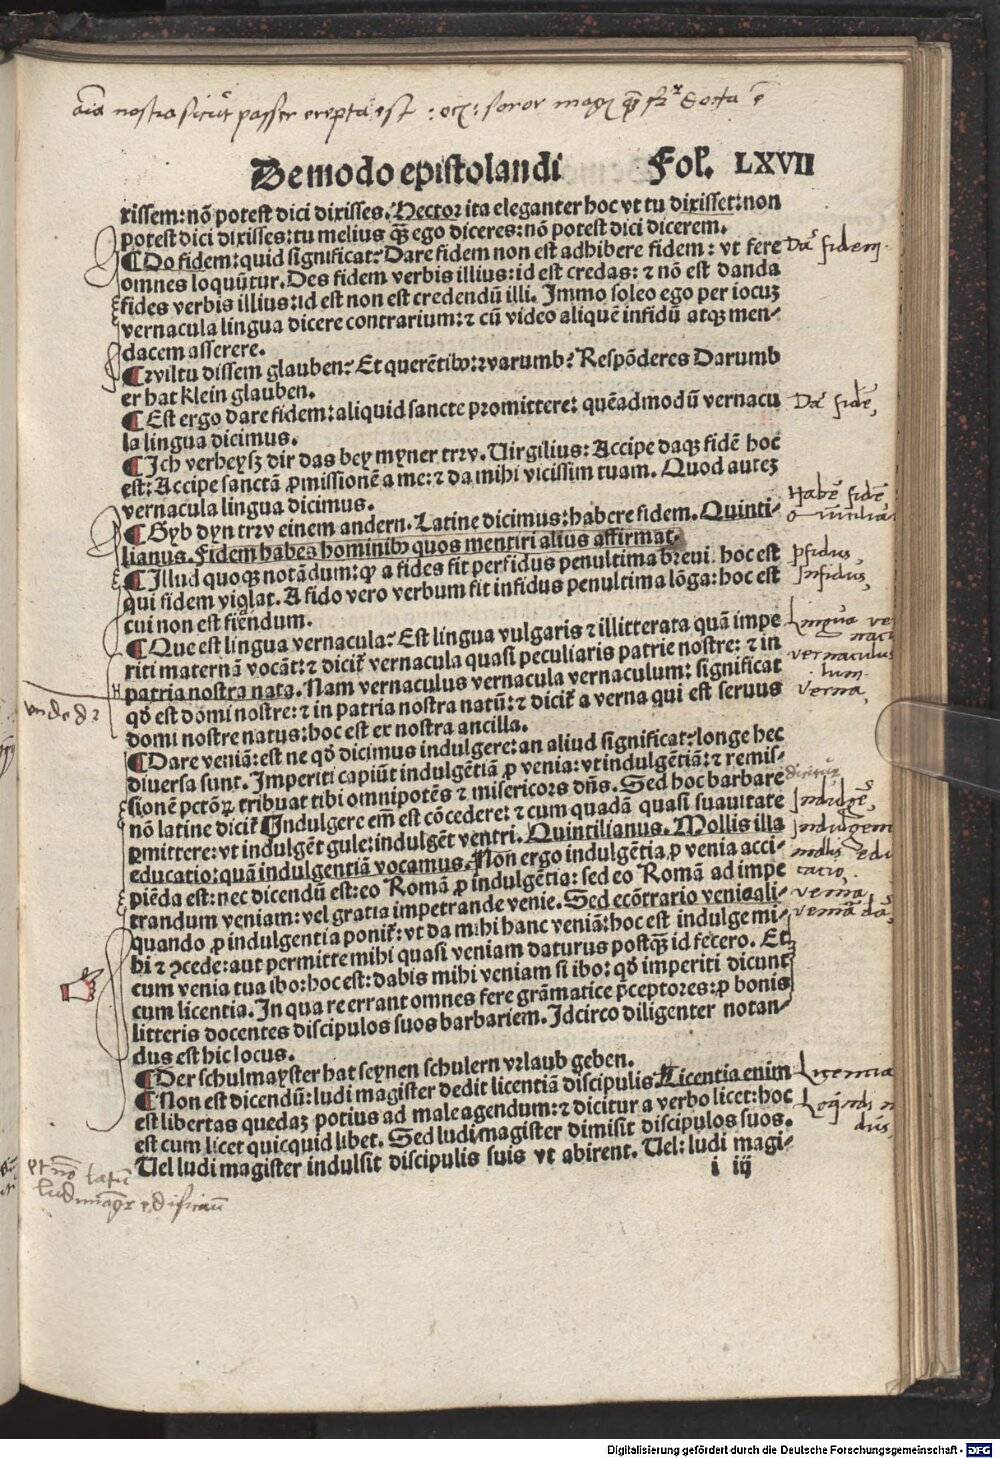 nostra sicut passer erepta est : soror
De modo epistolandi Fol. LXVII
xissem: nō potest dici dixisses. Hector ita eleganter hoc vt tu dixisset: non
potest dici dixisses: tu melius q̄ȝ ego diceres: nō potest dici dicerem.
¶ Do fidem: quid significat? Dare fidem non est adhibere fidem: vt fere
Da᷑ fidem.
omnes loquūtur. Des fidem verbis illius: id est credas: ⁊ nō est danda
fides verbis illius: id est non est credendū illi. Immo soleo ego per iocuꝫ
vernacula lingua dicere contrarium: ⁊ cū video aliquē infidū atqꝫ men⸗
dacem asserere.
¶ ꝛviltu dissem glauben? Et querētibꝰ: ꝛvarumb? Respōderes Darumb
er hat klein glauben.
¶ Est ergo dare fidem: aliquid sancte promittere: quēadmodū vernacu
Da᷑ fidē,
la lingua dicimus.
¶ Ich verheysȝ dir das bey myner trꝛv. Virgilius: Accipe daqꝫ fidē hoc
est: Accipe sanctā ꝓmissionē a me: ⁊ da mihi vicissim tuam. Quod auteꝫ
vernacula lingua dicimus.
Habē fidē
¶ Gyb dyn trꝛv einem andern. Latine dicimus: habere fidem. Quinti⸗
lianus. Fidem habes hominibꝰ quos mentiri alius affirmat.
¶ Illud quoqꝫ notādum: ꝙ a fides fit perfidus penultima breui. hoc est
ꝑfidus,
qui fidem violat. A fido vero verbum fit infidus penultima lōga: hoc est
Infidus,
cui non est fidendum.
¶ Que est lingua vernacula? Est lingua vulgaris ⁊ illitterata quā impe
Lingua ve
nacu
riti maternā vocāt: ⁊ dicit᷑ vernacula quasi peculiaris patrie nostre: ⁊ in
vernaculus
lum
patria nostra nata. Nam vernaculus vernacula vernaculum: significat
verna,
qđ est domi nostre: ⁊ in patria nostra natū: ⁊ dicit᷑ a verna qui est seruus
domi nostre natus: hoc est ex nostra ancilla.
¶ Dare veniā: est ne qđ dicimus indulgere: an aliud significat? longe hec
diuersa sunt. Imperiti capiūt indulgētiā ꝓ venia: vt indulgētiā: ⁊ remis⸗
sionē pctōꝝ tribuat tibi omnipotēs ⁊ misericors dn̄s. Sed hoc barbare
nō latine dicit᷑ ¶ Indulgere em̄ est cōcedere: ⁊ cum quadā quasi suauitate
Indulgē,
ꝑmittere: vt indulgēt gule: indulgēt ventri. Quintilianus. Mollis illa
Indulgem
educatio: quā indulgentiā vocamus. Non ergo indulgētia ꝓ venia acci⸗
mollis edu
catio.
piēda est: nec dicendū est: eo Romā ꝓ indulgētia: sed eo Romā ad impe
venia
trandum veniam: vel gratia impetrande venie. Sed ecōtrario venia ali⸗
veniā dā,
quando ꝓ indulgentia ponit᷑: vt da mihi hanc veniā: hoc est indulge mi⸗
hi ⁊ ꝯcede: aut permitte mihi quasi veniam daturus postq̄ȝ id fecero. Et
cum venia tua ibo: hoc est: dabis mihi veniam si ibo: qđ imperiti dicunt
cum licentia. In qua re errant omnes fere grāmatice p̄ceptores: ꝓ bonis
litteris docentes discipulos suos barbariem. Idcirco diligenter notan⸗
dus est hic locus.
¶ Der schulmayster hat seynen schulern vrlaub geben.
¶ Non est dicendū: ludi magister dedit licentiā discipulis. Licentia enim
Licentia
est libertas quedaꝫ potius ad male agendum: ⁊ dicitur a verbo licet: hoc
est cum licet quicquid libet. Sed ludi magister dimisit discipulos suos.
Vel ludi magister indulsit discipulis suis vt abirent. Vel: ludi magi⸗
i iij
Digitalisierung gefördert durch die Deutsche Forschungsgemeinschaft - DFG